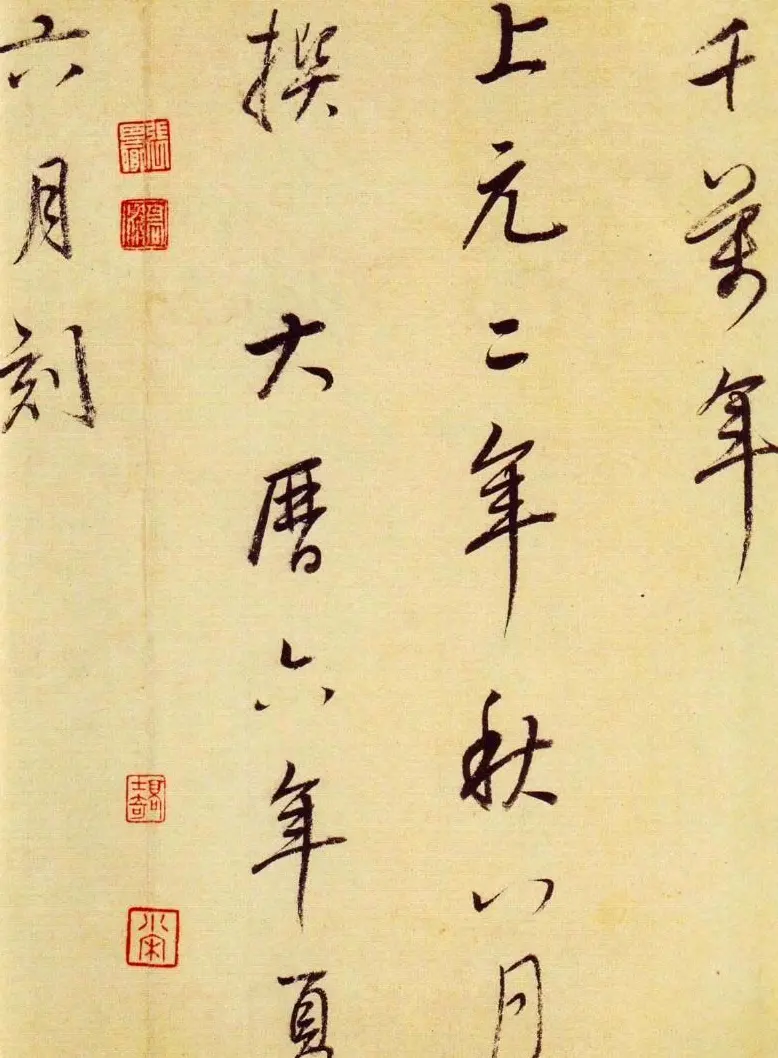 千萬年
上元二年秋八月
撰 大曆六年夏
六月刻